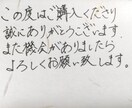 この度はご購入くださり
誠にありがとうございます
また機会がありましたら
よろしくお願い致します。